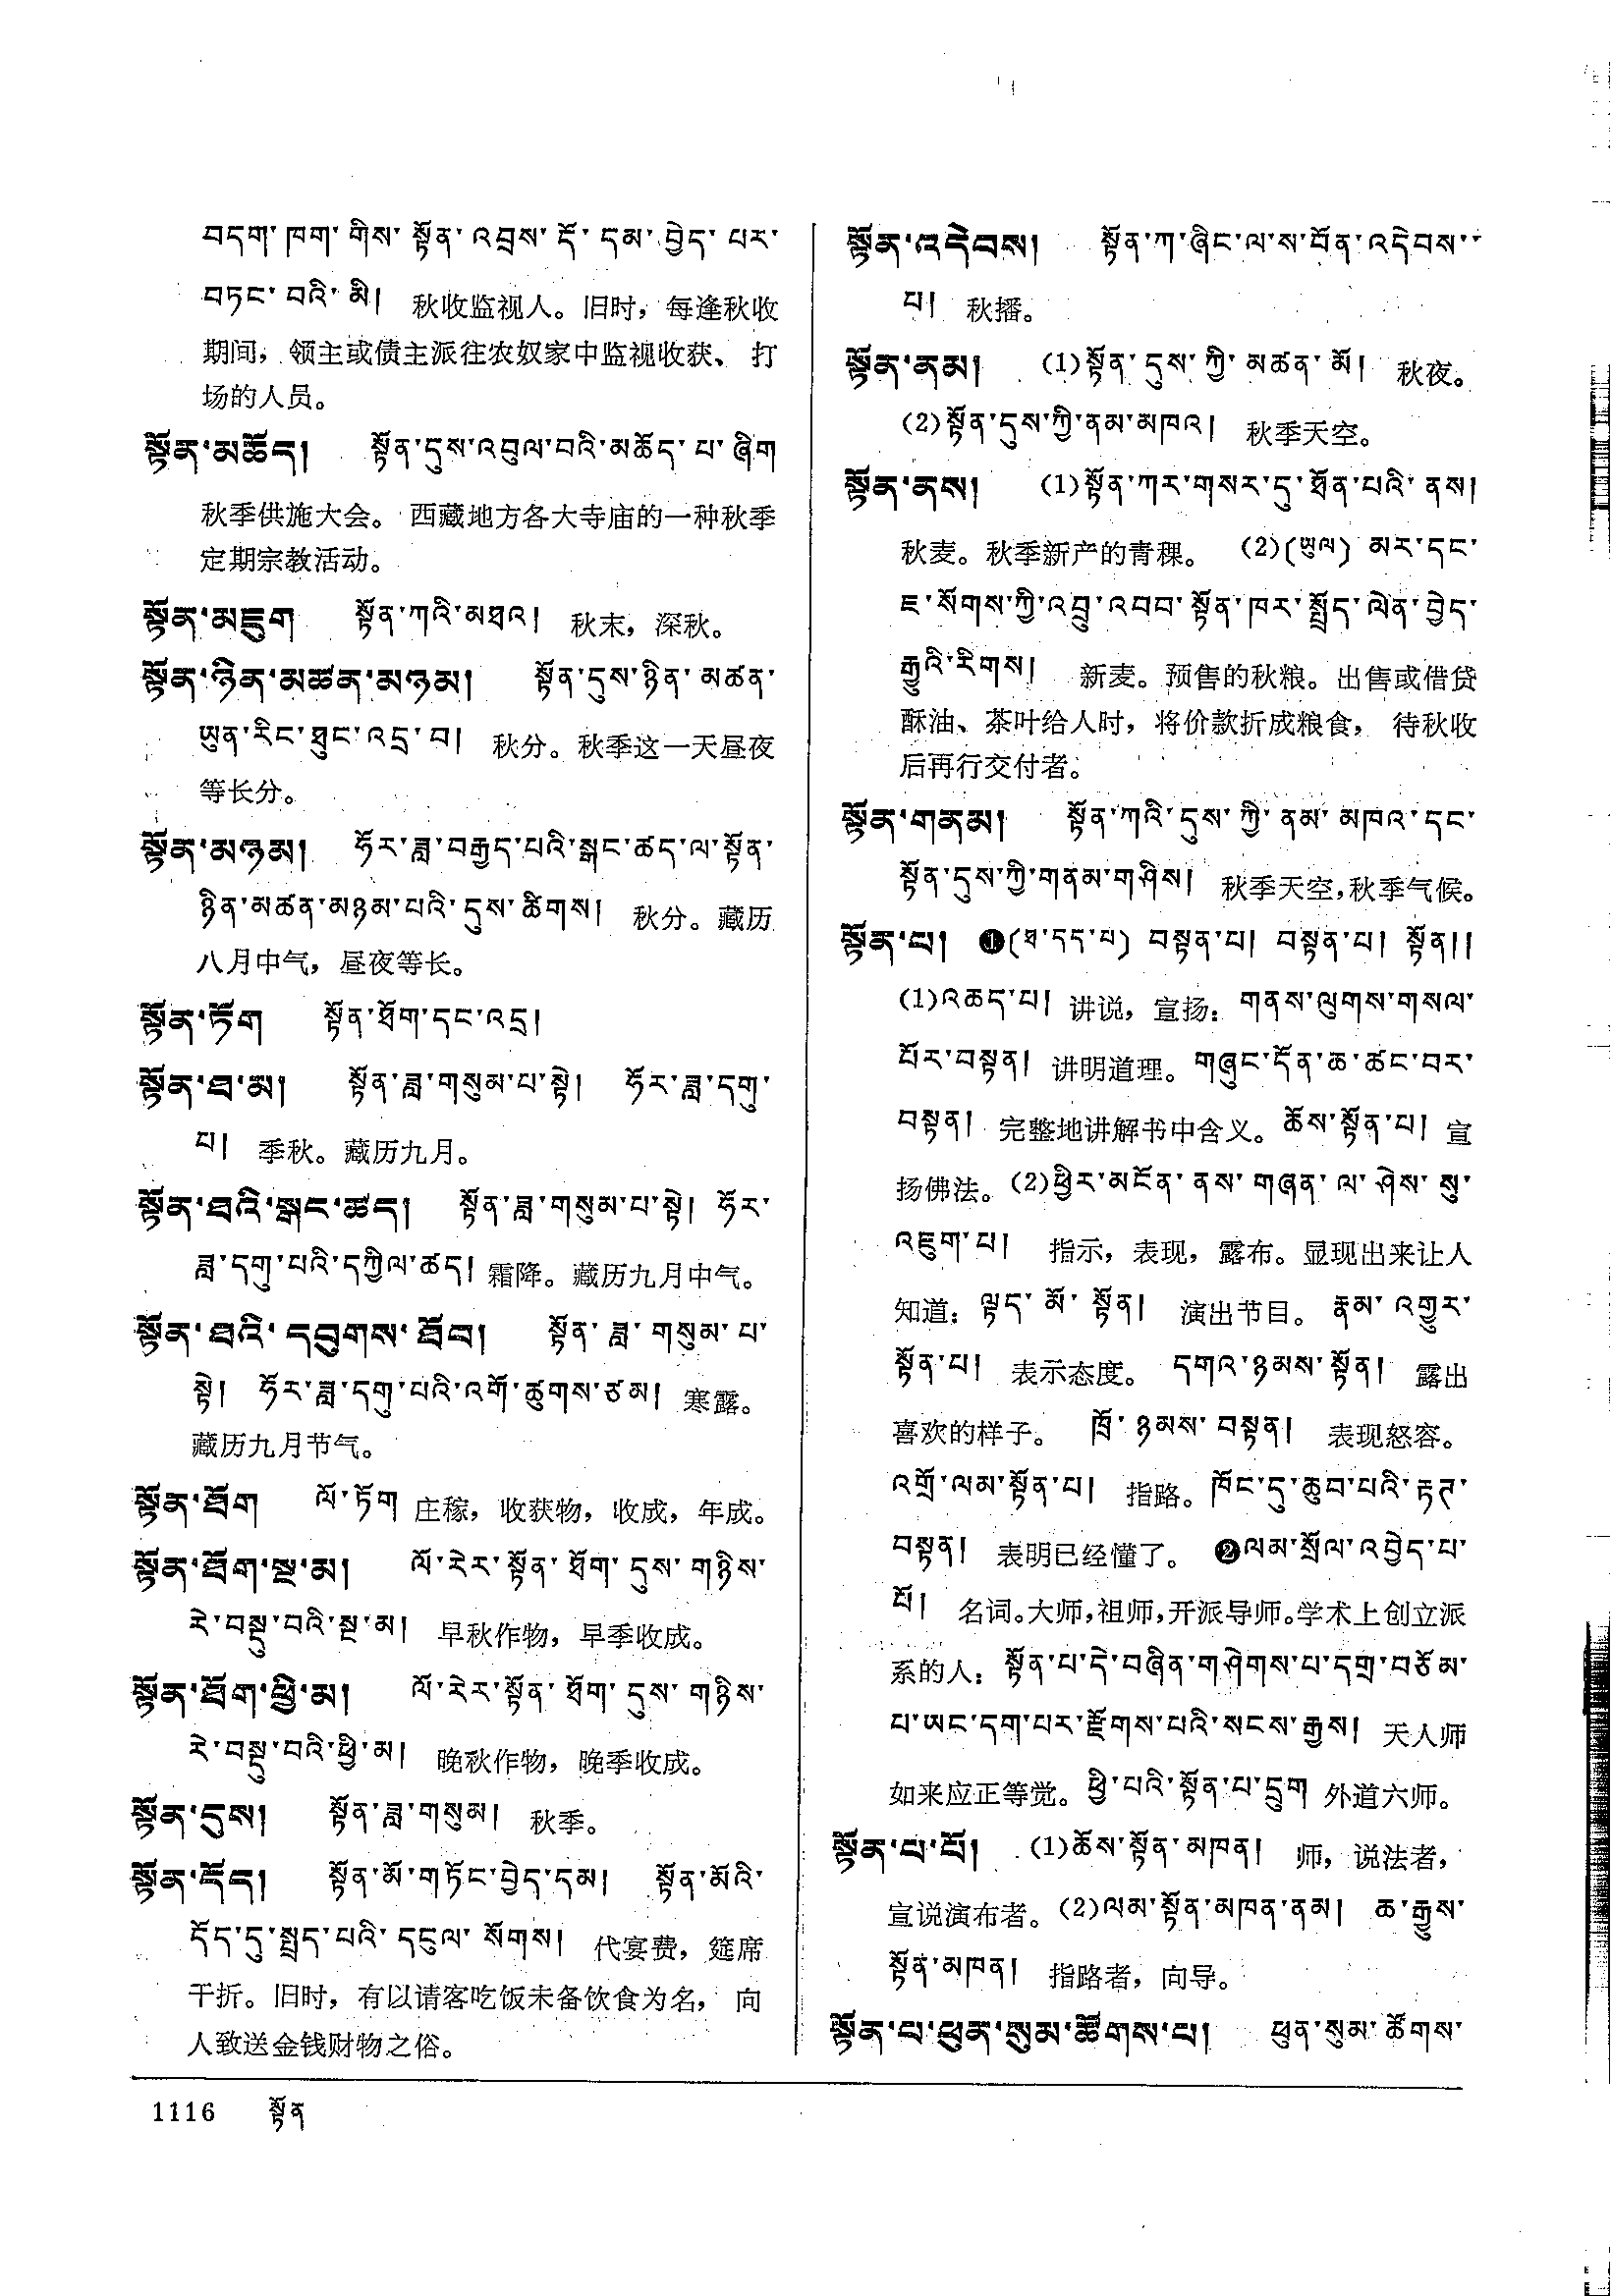 བདག་ཁག་གིས་སྟོན་འབྲས་དོ་དམ་བྱེད་པར་
བཏང་བའི་མི། 秋收监视人。旧时，每逢秋收
期间，领主或债主派往农奴家中监视收获、打
场的人员。
སྟོན་མཆོད། སྟོན་དུས་འབུལ་བའི་མཆོད་པ་ཞིག
秋季供施大会。西藏地方各大寺庙的一种秋季
定期宗教活动。
སྟོན་མཇུག སྟོན་ཀའི་མཐའ། 秋末，深秋。
སྟོན་ཉིན་མཚན་མཉམ། སྟོན་དུས་ཉིན་མཚན་
ཡུན་རིང་ཐུང་འདྲ་བ། 秋分。秋季这一天昼夜
等长分。
སྟོན་མཉམ། ཧོར་ཟླ་བརྒྱད་པའི་སྒང་ཚད་ལ་སྟོན་
ཉིན་མཚན་མཉམ་པའི་དུས་ཚིགས། 秋分。藏历
八月中气，昼夜等长。
སྟོན་ཏོག སྟོན་ཐོག་དང་འདྲ།
སྟོན་ཐ་མ། སྟོན་ཟླ་གསུམ་པ་སྟེ། ཧོར་ཟླ་དགུ་
པ། 季秋。藏历九月。
སྟོན་ཐའི་སྒང་ཚད། སྟོན་ཟླ་གསུམ་པ་སྟེ། ཧོར་
ཟླ་དགུ་པའི་དཀྱིལ་ཚད། 霜降。藏历九月中气。
སྟོན་ཐའི་དབུགས་ཐོབ། སྟོན་ཟླ་གསུམ་པ་
སྟེ། ཧོར་ཟླ་དགུ་པའི་འགོ་ཚུགས་ཙམ། 寒露。
藏历九月节气。
སྟོན་ཐོག ལོ་ཏོག 庄稼，收获物，收成，年成。
སྟོན་ཐོག་སྔ་མ། ལོ་རེར་སྟོན་ཐོག་དུས་གཉིས་
རེ་བསྡུ་བའི་སྔ་མ། 早秋作物，早季收成。
སྟོན་ཐོག་ཕྱི་མ། ལོ་རེར་སྟོན་ཐོག་དུས་གཉིས་
རེ་བསྡུ་བའི་ཕྱི་མ། 晚秋作物，晚季收成。
སྟོན་དུས། སྟོན་ཟླ་གསུམ། 秋季。
སྟོན་དོད། སྟོན་མོ་གཏོང་བྱེད་དམ། སྟོན་མོའི་
དོད་དུ་སྤྲད་པའི་དངུལ་སོགས། 代宴费，筵席
干折。旧时，有以请客吃饭未备饮食为名，向
人致送金钱财物之俗。
སྟོན་འདེབས། སྟོན་ཀ་ཞིང་ལ་ས་བོན་འདེབས་
པ། 秋播。
སྟོན་ནམ། (1)སྟོན་དུས་ཀྱི་མཚན་མོ། 秋夜。
(2)སྟོན་དུས་ཀྱི་ནམ་མཁའ། 秋季天空。
སྟོན་ནས། (1)སྟོན་ཀར་གསར་དུ་ཐོན་པའི་ནས།
秋麦。秋季新产的青稞。 (2)(ཡུལ) མར་དང་
ཇ་སོགས་ཀྱི་འབྲུ་འབབ་སྟོན་ཁར་སྤྲོད་ལེན་བྱེད་
རྒྱུའི་རིགས། 新麦。预售的秋粮。出售或借贷
酥油、茶叶给人时，将价款折成粮食，待秋收
后再行交付者。
སྟོན་གནམ། སྟོན་ཀའི་དུས་ཀྱི་ནམ་མཁའ་དང་
སྟོན་དུས་ཀྱི་གནམ་གཤིས། 秋季天空，秋季气候。
སྟོན་པ། ❶(ཐ་དད་པ) བསྟན་པ། བསྟན་པ། སྟོན།།
(1)འཆད་པ། 讲说，宣扬：གནས་ལུགས་གསལ་
པོར་བསྟན། 讲明道理。གཞུང་དོན་ཆ་ཚང་བར་
བསྟན། 完整地讲解书中含义。ཆོས་སྟོན་པ། 宣
扬佛法。(2)ཕྱིར་མངོན་ནས་གཞན་ལ་ཤེས་སུ་
འཇུག་པ། 指示，表现，露布。显现出来让人
知道：ལྟད་མོ་སྟོན། 演出节目。རྣམ་འགྱུར་
སྟོན་པ། 表示态度。དགའ་ཉམས་སྟོན། 露出
喜欢的样子。ཁྲོ་ཉམས་བསྟན། 表现怒容。
འགྲོ་ལམ་སྟོན་པ། 指路。ཁོང་དུ་ཆུབ་པའི་རྟཊ་
བསྟན། 表明已经懂了。❷ལམ་སྲོལ་འབྱེད་པ་
པོ། 名词。大师，祖师，开派导师。学术上创立派
系的人：སྟོན་པ་དེ་བཞིན་གཤེགས་པ་དགྲ་བཅོམ་
པ་ཡང་དག་པར་རྫོགས་པའི་སངས་རྒྱས། 天人师
如来应正等觉。ཕྱི་པའི་སྟོན་པ་དྲུག 外道六师。
སྟོན་པ་པོ། (1)ཆོས་སྟོན་མཁན། 师，说法者，
宣说演布者。(2)ལམ་སྟོན་མཁན་ནམ། ཆ་རྒྱུས་
སྟོན་མཁན། 指路者，向导。
སྟོན་པ་ཕུན་སུམ་ཚོགས་པ། ཕུན་སུམ་ཚོགས་
1116 སྟོན